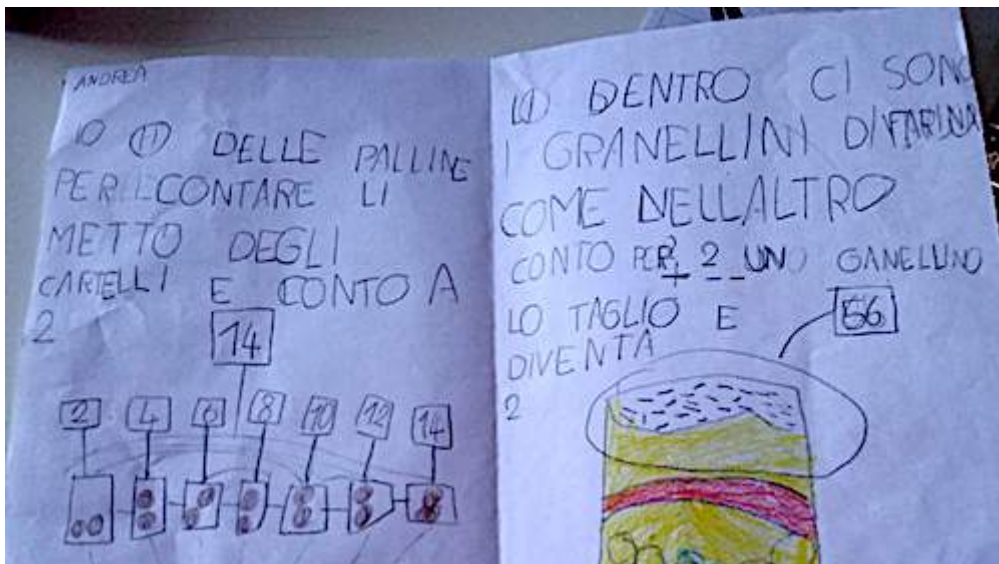 ANDREA
IO 11 DELLE PALLINE
PER CONTARE LI
METTO DEGLI
CARTELLI E CONTO A
2
14
2 4 6 8 10 12 14
DENTRO CI SONO
I GRANELLINI DI FARINA
COME NELLALTRO
CONTO PER 2 UNO GANELLINO
LO TAGLIO E
DIVENTA
2
56